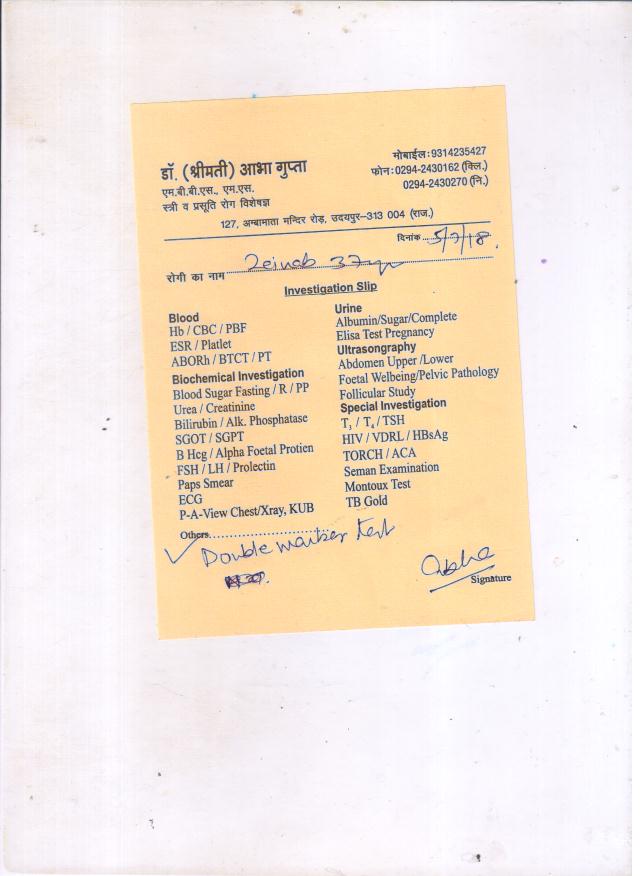 डॉ. (श्रीमती) आभा गुप्ता
एम.बी.बी.एस., एम.एस.
स्त्री व प्रसूति रोग विशेषज्ञ
मोबाईल:9314235427
फोन:0294-2430162 (क्लि.)
0294-2430270 (नि.)
127, अम्बामाता मन्दिर रोड़, उदयपुर–313 004 (राज.)
दिनांक 5/7/18.
रोगी का नाम Zeinab 37yr
Investigation Slip
Blood
Hb / CBC / PBF
ESR / Platlet
ABORh / BTCT / PT
Biochemical Investigation
Blood Sugar Fasting / R / PP
Urea / Creatinine
Bilirubin / Alk. Phosphatase
SGOT / SGPT
B Hcg / Alpha Foetal Protien
FSH / LH / Prolectin
Paps Smear
ECG
P-A-View Chest/Xray, KUB
Urine
Albumin/Sugar/Complete
Elisa Test Pregnancy
Ultrasongraphy
Abdomen Upper /Lower
Foetal Welbeing/Pelvic Pathology
Follicular Study
Special Investigation
T₃ / T₄ / TSH
HIV / VDRL / HBsAg
TORCH / ACA
Seman Examination
Montoux Test
TB Gold
Others..............................
✓ Double marker test
Abha
Signature